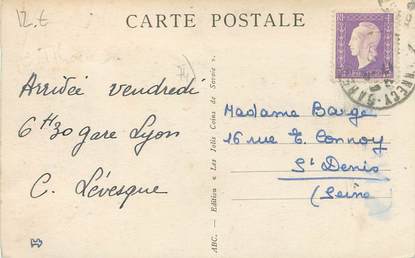 12.€
CARTE POSTALE
Arrivée vendredi
6H30 gare Lyon
C. Lévesque
ABC. — Edition « Les Jolis Coins de Savoie ».
Madame Barge
16 rue E. Connoy
St Denis
(Seine